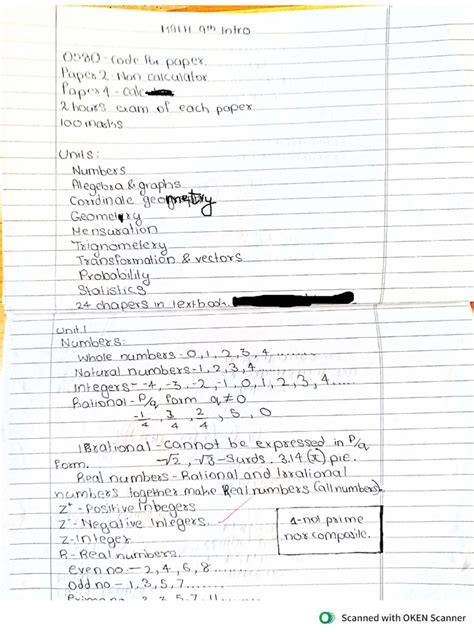 MATH 9th Intro
0580 - code for paper
Paper 2 - Non calculator
Paper 4 - Calc
2 hours exam of each paper
100 marks
Units:
Numbers
Alegebra & graphs
Corrdinate geometry
Geometry
Mensuration
Trignometery
Transformation & vectors
Probability
Statistics
24 chapers in textbook.
Unit.1
Numbers:
Whole numbers - 0, 1, 2, 3, 4.......
Natural numbers - 1, 2, 3, 4......
Integers - -4, -3, -2, -1, 0, 1, 2, 3, 4.....
Rational - P/q form q≠0
-1/4, 3/4, 2/4, 5, 0
Irrational - Cannot be expressed in P/q
form. √2, √3 - Surds. 3.14 (π) pie.
Real numbers - Rational and Irrational
numbers together make Real numbers (all numbers)
Z⁺ - Positive Integers
Z⁻ - Negative Integers.
Z - Integer
R - Real numbers.
1 - not prime
nor composite.
even no. - 2, 4, 6, 8......
odd no - 1, 3, 5, 7......
Scanned with OKEN Scanner